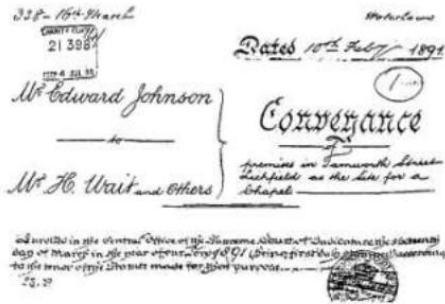 328 - 16th March
CHARITY
21 398
Dated 10th Feby 1891
Mr. Edward Johnson
to
Mr. H. Wait and Others
Conveyance
of
premises in Tamworth Street
Lichfield as the site for a
Chapel
Enrolled in the Central Office of the Supreme Court of Judicature the
day of March in the year of our Lord 1891 (being first duly stamped) according
to the tenor of the Statutes made for that purpose